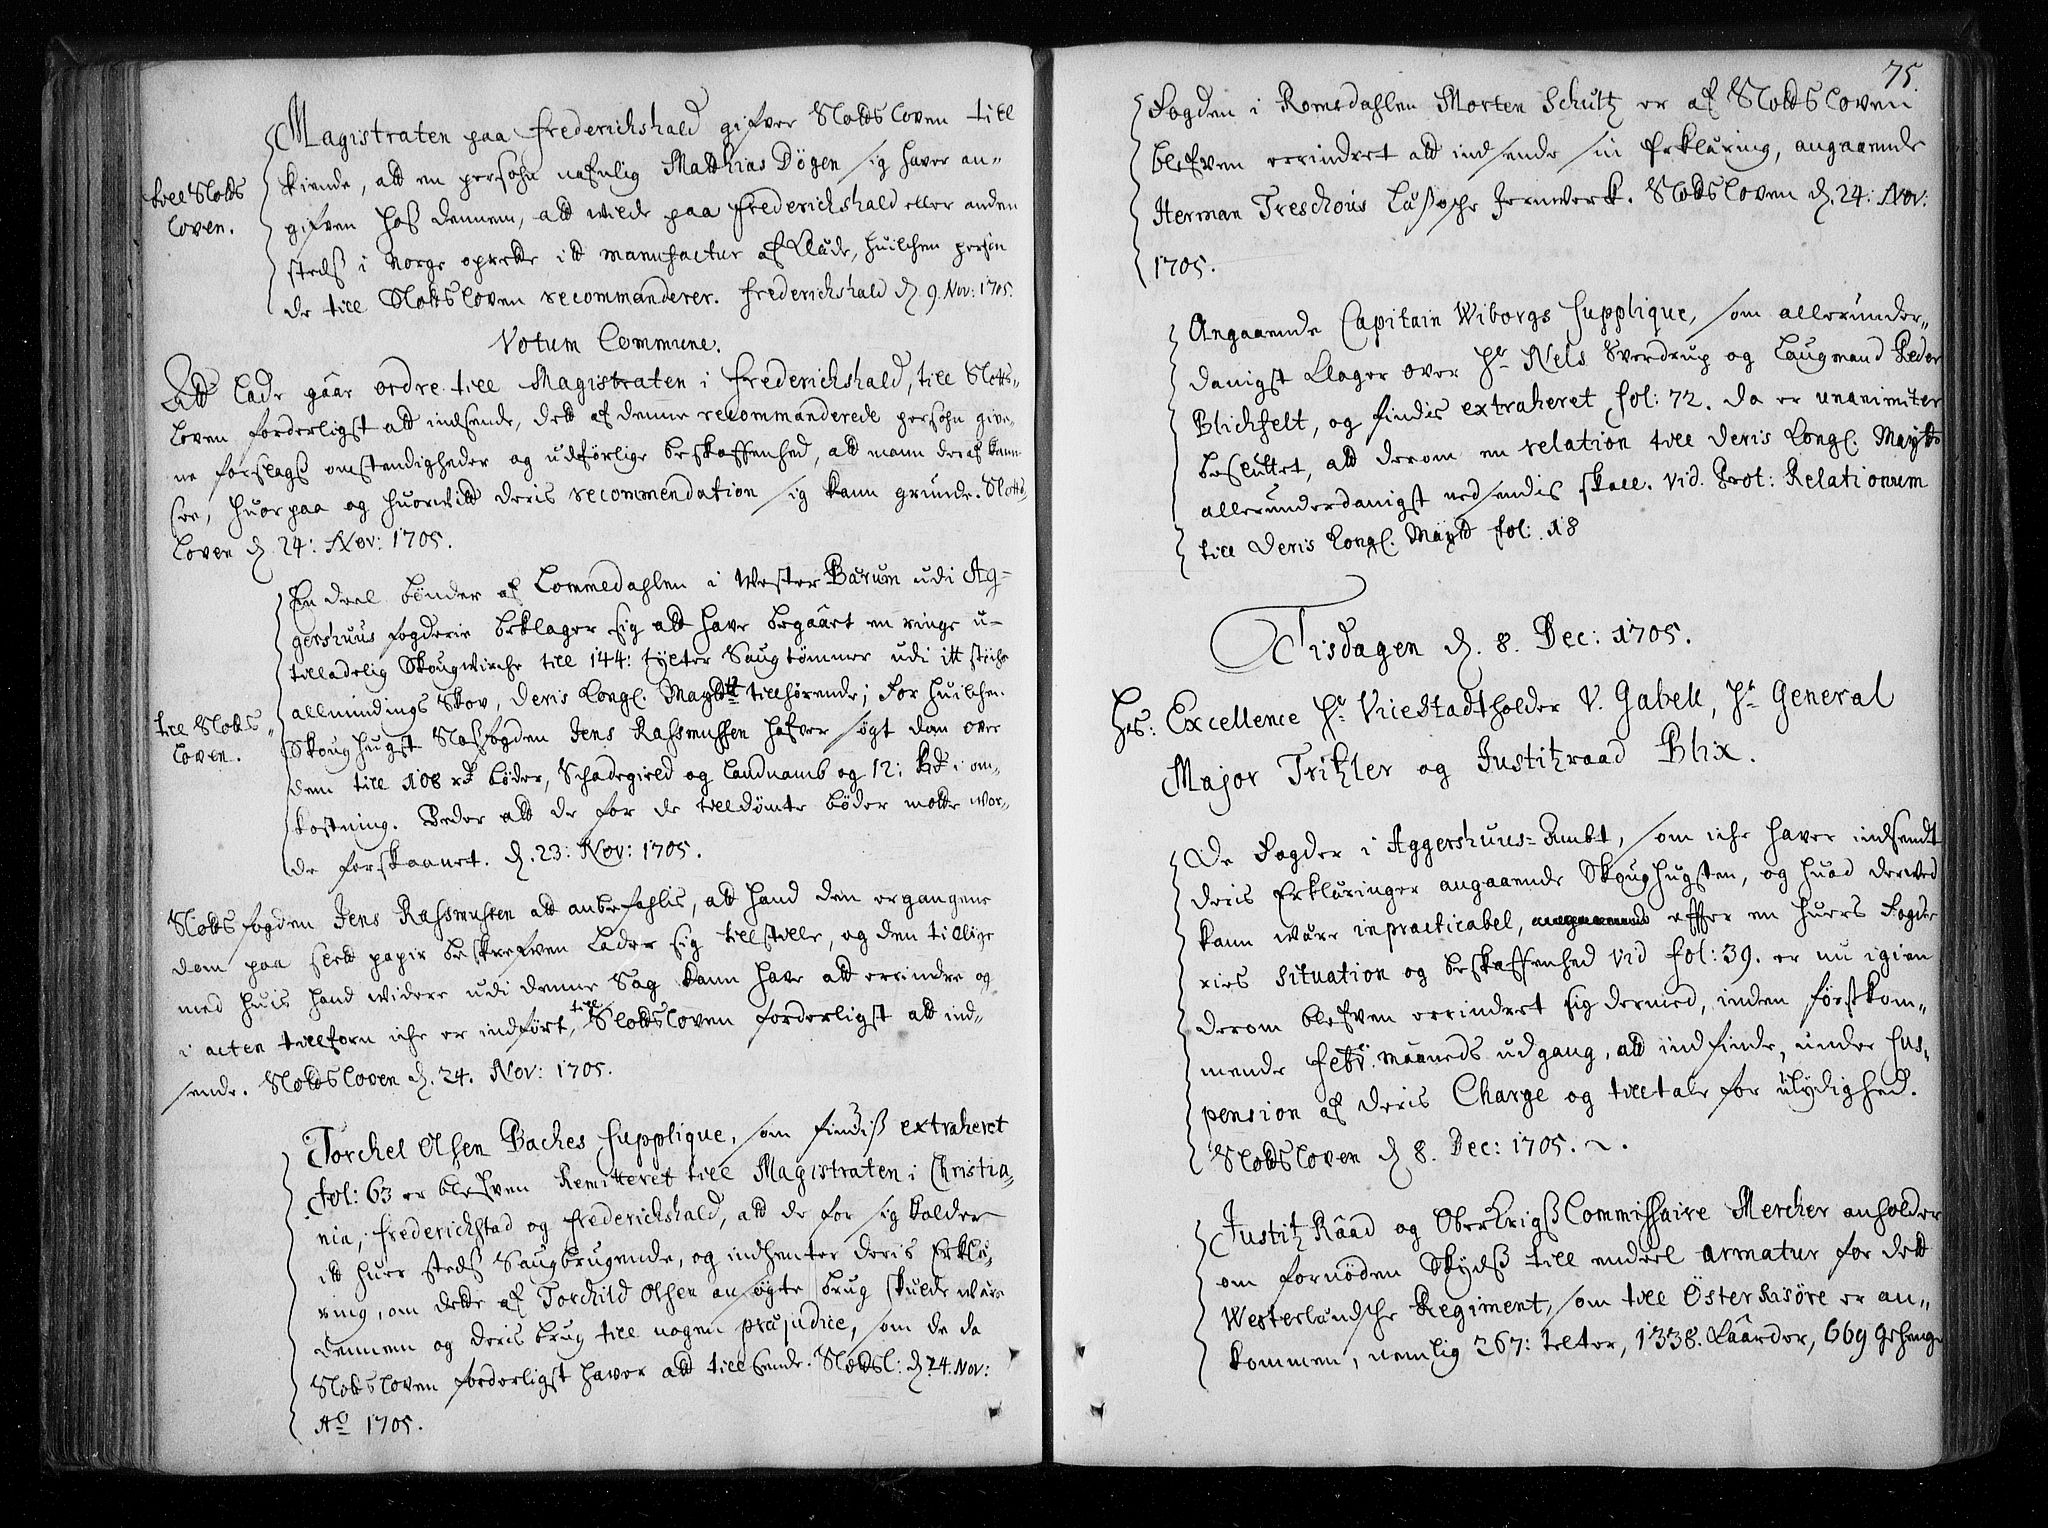 Magistraten paa Frederichshald gifver Slotsloven till
kiende, att en persohn nafnlig Matthias Dögen sig haver an-
till Slots
loven.
gifven hos dennem, att wilde paa Frederichshald eller anden
steds i Norge oprette itt manufactur af Klæde, huilchen persohn
de till Slotsloven recommanderer. Frederichshald d. 9. Nov: 1705.
Votum Commune.
Att lade gaar ordre till Magistraten i Frederichshald, till Slotts-
loven forderligst att indsende, dett af denne recommanderede persohn give-
ne forslags omstendigheder og udførlige beskaffenhed, att mann deraf kann
see, huorpaa og huorvitt deris recommendation sig kann grunde. Slotts-
loven d. 24: Nov: 1705.
En deel bönder af Lommedahlen i Wester Bærum udi Ag-
gershuus fogderie beklager sig att have begaaet en ringe u-
tilladelig Skougwirche till 144: tylter Saugtömmer udi itt støche
allmindings Skov, deris Kongl. Maytts tillhørende; For huilchen
till Slots-
loven.
Skoughugst Slotsfogden Jens Rasmussen hafver søgt dom over
dem till 108 rd bøder, Schadegield og landnamb og 12: Rd i om-
kostning. Beder att de for de tilldømte bøder motte vor-
de forskaanet. d. 23: Nov: 1705.
Slotsfogden Jens Rasmussen att anbefahlis, att hand den ergangene
dom paa slett papir beskrefven lader sig tillstille, og den tillige
med huis hand widere udi denne Sag kann have att errindre og
i acten tillforn iche er indført, till Slottsloven forderligst att ind-
sende. Slottsloven d. 24. Nov: 1705.
Torchel Olsen Baches Supplique, som findis extraheret
fol: 63 er blefven Remitteret till Magistraten i Christia-
nia, Frederichstad og Frederichshald, att de for sig kalder
itt huer steds Saugbrugende, og indhenter deris Erklæ-
ring, om dette af Torchild Olsen ansøgte brug skulde wære
dennem og deris brug till nogen præjudice, som de da
Slottsloven forderligst haver att tillsende. Slotsl: d. 24. Nov:
Ao 1705.
75.
Fogden i Romsdahlen Morten Schultz er af Slottsloven
blefven errindret att indsende sin Erklæring, angaaende
Herman Treschous Jernwerk. Slottsloven d. 24: Nov:
1705.
Angaaende Capitain Wiborgs Supplique, som allerunder-
danigst klager over Hr. Nels Sverdrup og Laugmand Peder
Blichfelt, og findis extraheret fol: 72. da er unanimiter
besluttet, att derom en relation till deris Kongl. Maytt
allerunderdanigst nedsendis skall. vid. Prot: Relationum
till deris Kongl. Maytt fol: 18
Tisdagen d. 8. Dec: 1705.
Hs: Excellence Hr. Vicestadtholder V. Gabell, Hr. General
Major Tritzler og Justitzraad Blix.
De Fogder i Aggershuus-Ambt, som iche haver indsendt
deris Erklæringer angaaende Skoughugsten, og huad derved
kann være inpracticabel, effter en huers Fogde-
ries situation og beskaffenhed vid fol: 39. er nu igien
derom blefven errindert sig dermed, inden førstkom-
mende Febr: maaneds udgang, att indfinde, under sus-
pension af deris Charge og tilltale for ulydighed.
Slottsloven d. 8. Dec: 1705.
Justitz Raad og OberKrigs Commissaire Mercher anholder
om fornöden Skyds till endeel armatur for dett
Westerlandsche Regiment, som till Österrisöre er an-
kommen, nemlig 267: telter, 1338. Kaarder, 669 gehenge